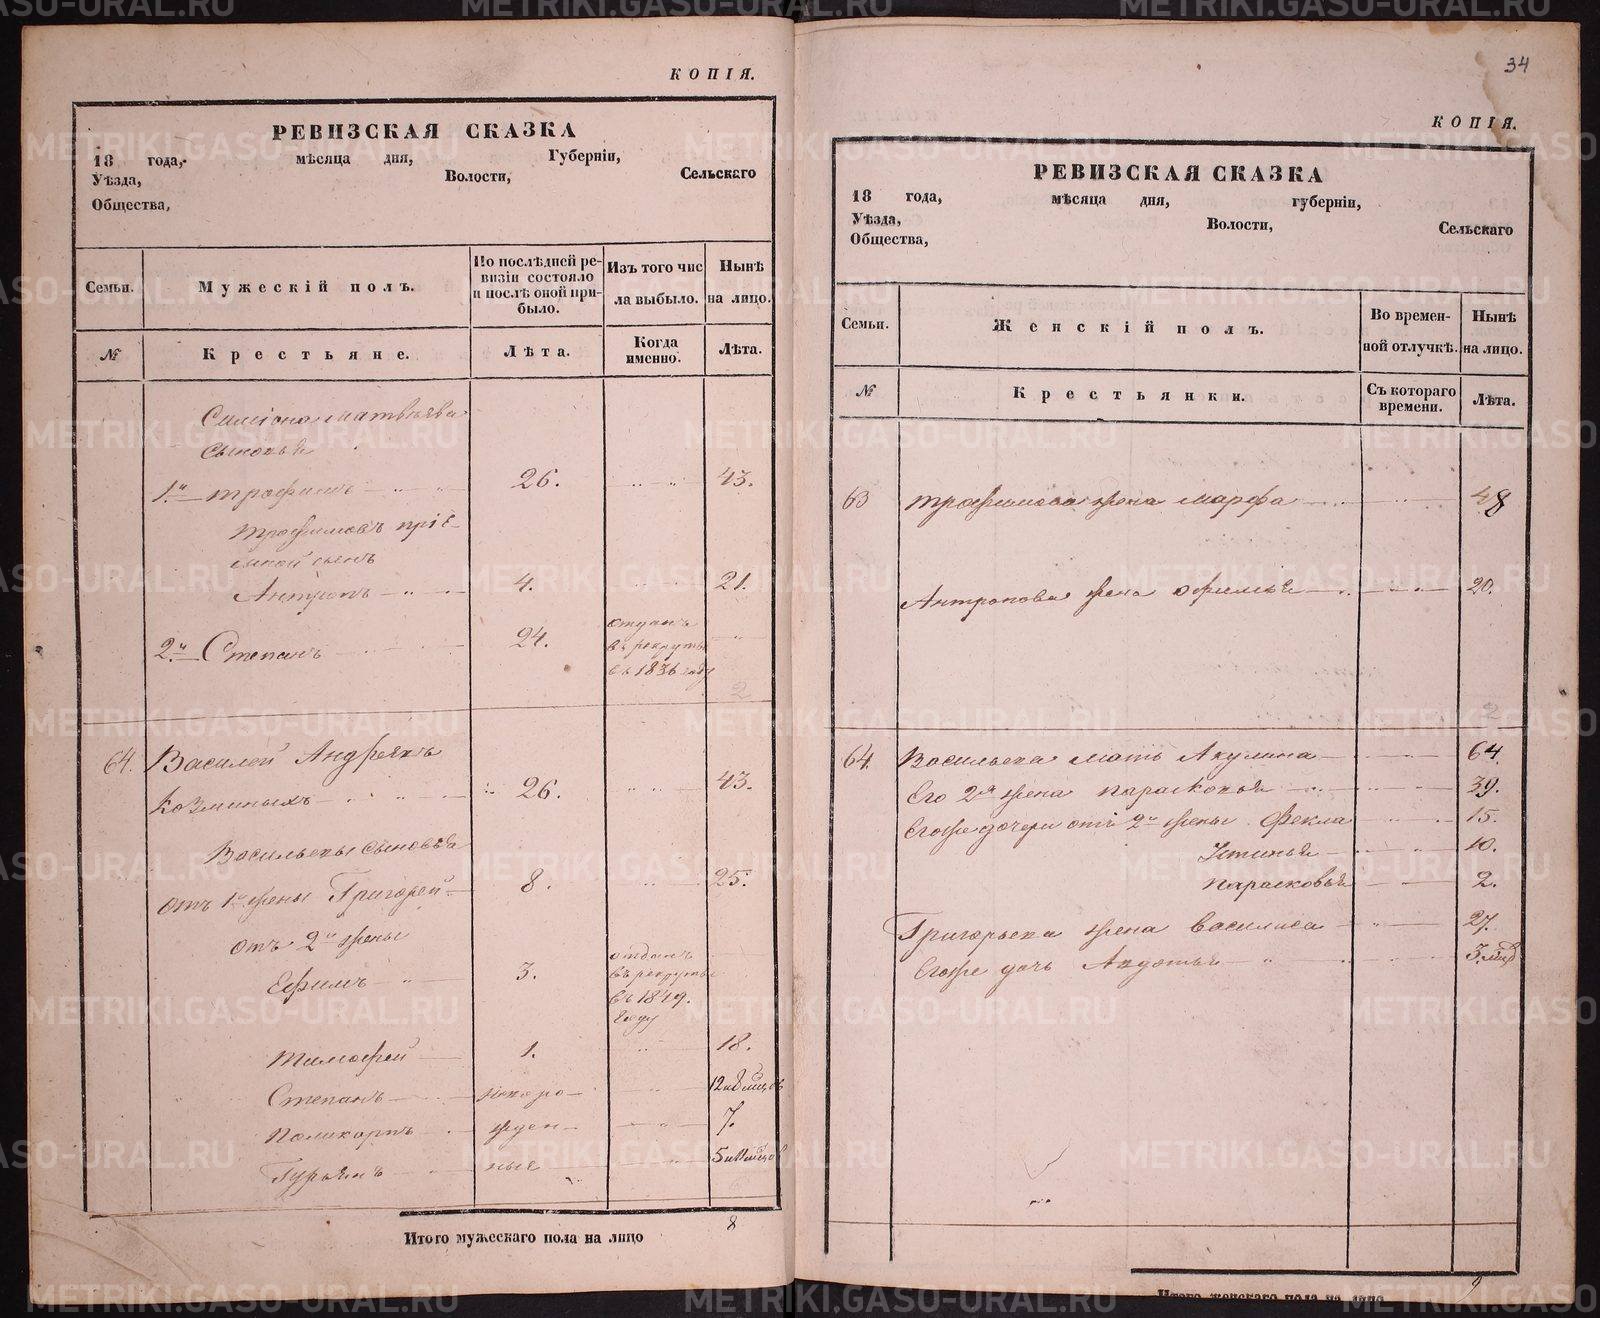 КОПІЯ.
РЕВИЗСКАЯ СКАЗКА
18 года, мѣсяца дня, Губерніи,
Уѣзда, Волости, Сельскаго
Общества,
Семьи. Мужескій полъ. По послѣдней ревизіи состояло и послѣ оной прибыло. Изъ того числа выбыло. Нынѣ на лицо.
№ Крестьяне. Лѣта. Когда именно. Лѣта.
Симіона Матвѣева
сыновья
1й Трофимъ 26. 43.
Трофимовъ пріе-
мной сынъ
Антропъ 4. 21.
2й Степанъ 24. отданъ
въ рекруты
въ 1836 году
2
64. Василей Андреявъ
Козминыхъ 26. 43.
Васильевы сыновья
отъ 1й жены Григорей 8. 25.
отъ 2й жены
Ефимъ 3. отданъ
въ рекруты
въ 1849.
году
Тимофей 1. 18.
Степанъ новоро- 12 и 8 мѣцовъ
Поликарпъ жден- 7.
Гурьянъ ныя 5 и 11 мѣцов
Итого мужескаго пола на лицо 8
34
КОПІЯ.
РЕВИЗСКАЯ СКАЗКА
18 года, мѣсяца дня, губерніи,
Уѣзда, Волости, Сельскаго
Общества,
Семьи. Женскій полъ. Во временной отлучкѣ. Нынѣ на лицо.
№ Крестьянки. Съ котораго времени. Лѣта.
63 Трофимова жена Марфа 48
Антропова жена Офимья 20.
2
64. Васильева мать Акулина 64.
Его 2я жена Парасковья 39.
Егоже дочери отъ 2й жены Фекла 15.
Устинья 10.
Парасковья 2.
Григорьева жена Василиса 27.
Егоже дочь Авдотья 3. мѣц
Итого женскаго пола на лицо 9
METRIKI.GASO-URAL.RU